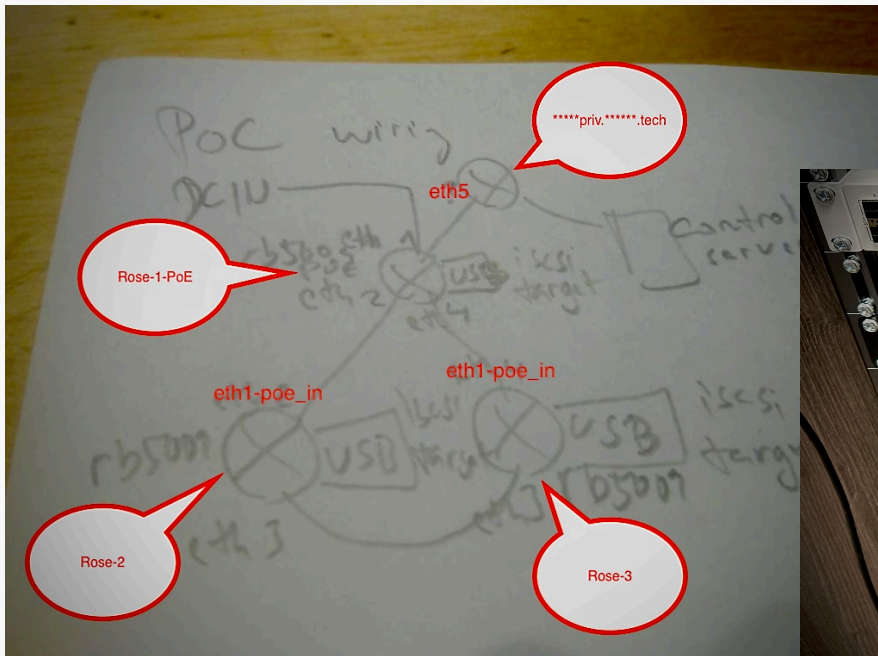 PoC wiriy
*****priv.******.tech
DCIN
eth5
control
server
Rose-1-PoE
eth
PoE
eth2
USB
iscsi
target
eth4
eth1-poe_in
eth1-poe_in
rb5009
USB
iscsi
target
USB
iscsi
eth3
eth3
rb5009
Rose-2
Rose-3